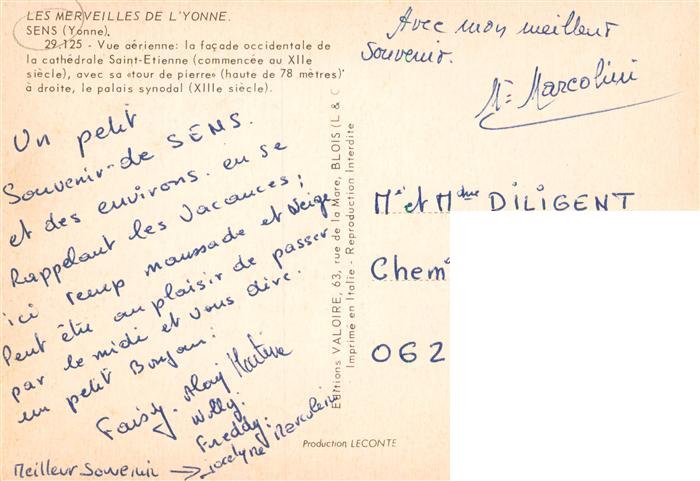 LES MERVEILLES DE L'YONNE.
SENS (Yonne).
29.125 - Vue aérienne: la façade occidentale de
la cathédrale Saint-Etienne (commencée au XIIe
siècle), avec sa «tour de pierre» (haute de 78 mètres)
à droite, le palais synodal (XIIIe siècle).
Un petit
Souvenir de SENS.
et des environs. en se
Rappelant les Vacances;
ici temp moussade et Neige
Peut être au plaisir de passer
par le midi et vous dire.
un petit Bonjour.
Martine
Willy.
Freddy.
Jocelyne Marcolini
Meilleur Souvenir →
Editions VALOIRE, 63, rue de la Mare, BLOIS (L & C
Imprimé en Italie - Reproduction Interdite
Production LECONTE
Avec mon meilleur
Souvenir.
Mr Marcolini
Mr et Mdme DILIGENT
Chem
062